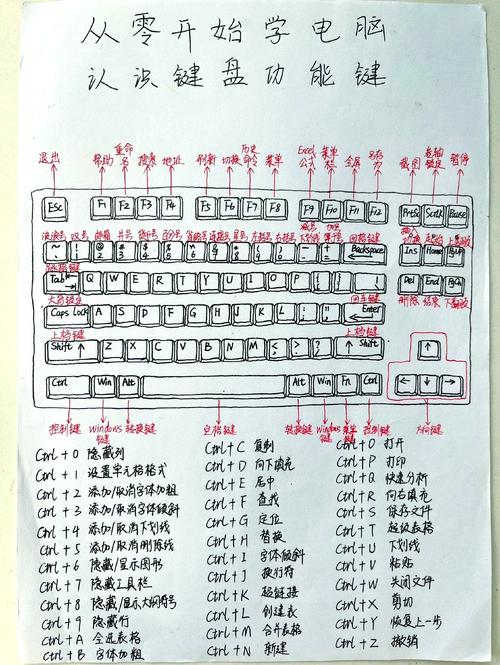 从零开始学电脑
认识键盘功能键
退出 帮助 重命名 搜索 地址 刷新 切换 历史命令 菜单 Excel公式 菜单栏 全屏 另存为 截图 卷轴锁定 暂停
Esc F1 F2 F3 F4 F5 F6 F7 F8 F9 F10 F11 F12 PrtSc Scrlk Pause
波浪号 叹号 邮箱 井号 货币号 百分号 省略号 连接号 星号 左括号 右括号 减号下划线 加号等号 回格键 插入切换 起始 上翻页
~ ! 1 @ 2 # 3 $ 4 % 5 6 & 7 * 8 ( 9 ) 0 - + = Backspace Ins Home PgUp
Tab Q W E R T Y U I O P { [ } ] Del End PgDn
大写锁定 回车键 删除 结束 下翻页
Caps Lock A S D F G H J K L : ; Enter
上档键 上档键
Shift ↑ Z X C V B N M < > ? / ↑ Shift
↑
Ctrl Win Alt Alt Win Fn Ctrl ← ↓ →
控制键 windows键 转换键 空格键 转换键 windows键 菜单键 控制键 方向键
Ctrl + 0 隐藏列
Ctrl + 1 设置单元格格式
Ctrl + 2 添加/取消字体加粗
Ctrl + 3 添加/取消字体倾斜
Ctrl + 4 添加/取消下划线
Ctrl + 5 添加/取消删除线
Ctrl + 6 隐藏/显示图形
Ctrl + 7 隐藏工具栏
Ctrl + 8 隐藏/显示大纲符号
Ctrl + 9 隐藏行
Ctrl + A 全选表格
Ctrl + B 字体加粗
Ctrl + C 复制
Ctrl + D 向下填充
Ctrl + E 居中
Ctrl + F 查找
Ctrl + G 定位
Ctrl + H 替换
Ctrl + I 字体倾斜
Ctrl + J 换行符
Ctrl + K 超链接
Ctrl + L 创建表
Ctrl + M 合并表格
Ctrl + N 新建
Ctrl + O 打开
Ctrl + P 打印
Ctrl + Q 快速分析
Ctrl + R 向右填充
Ctrl + S 保存文件
Ctrl + T 超级表格
Ctrl + U 下划线
Ctrl + V 粘贴
Ctrl + W 关闭文件
Ctrl + X 剪切
Ctrl + Y 恢复上一步
Ctrl + Z 撤销